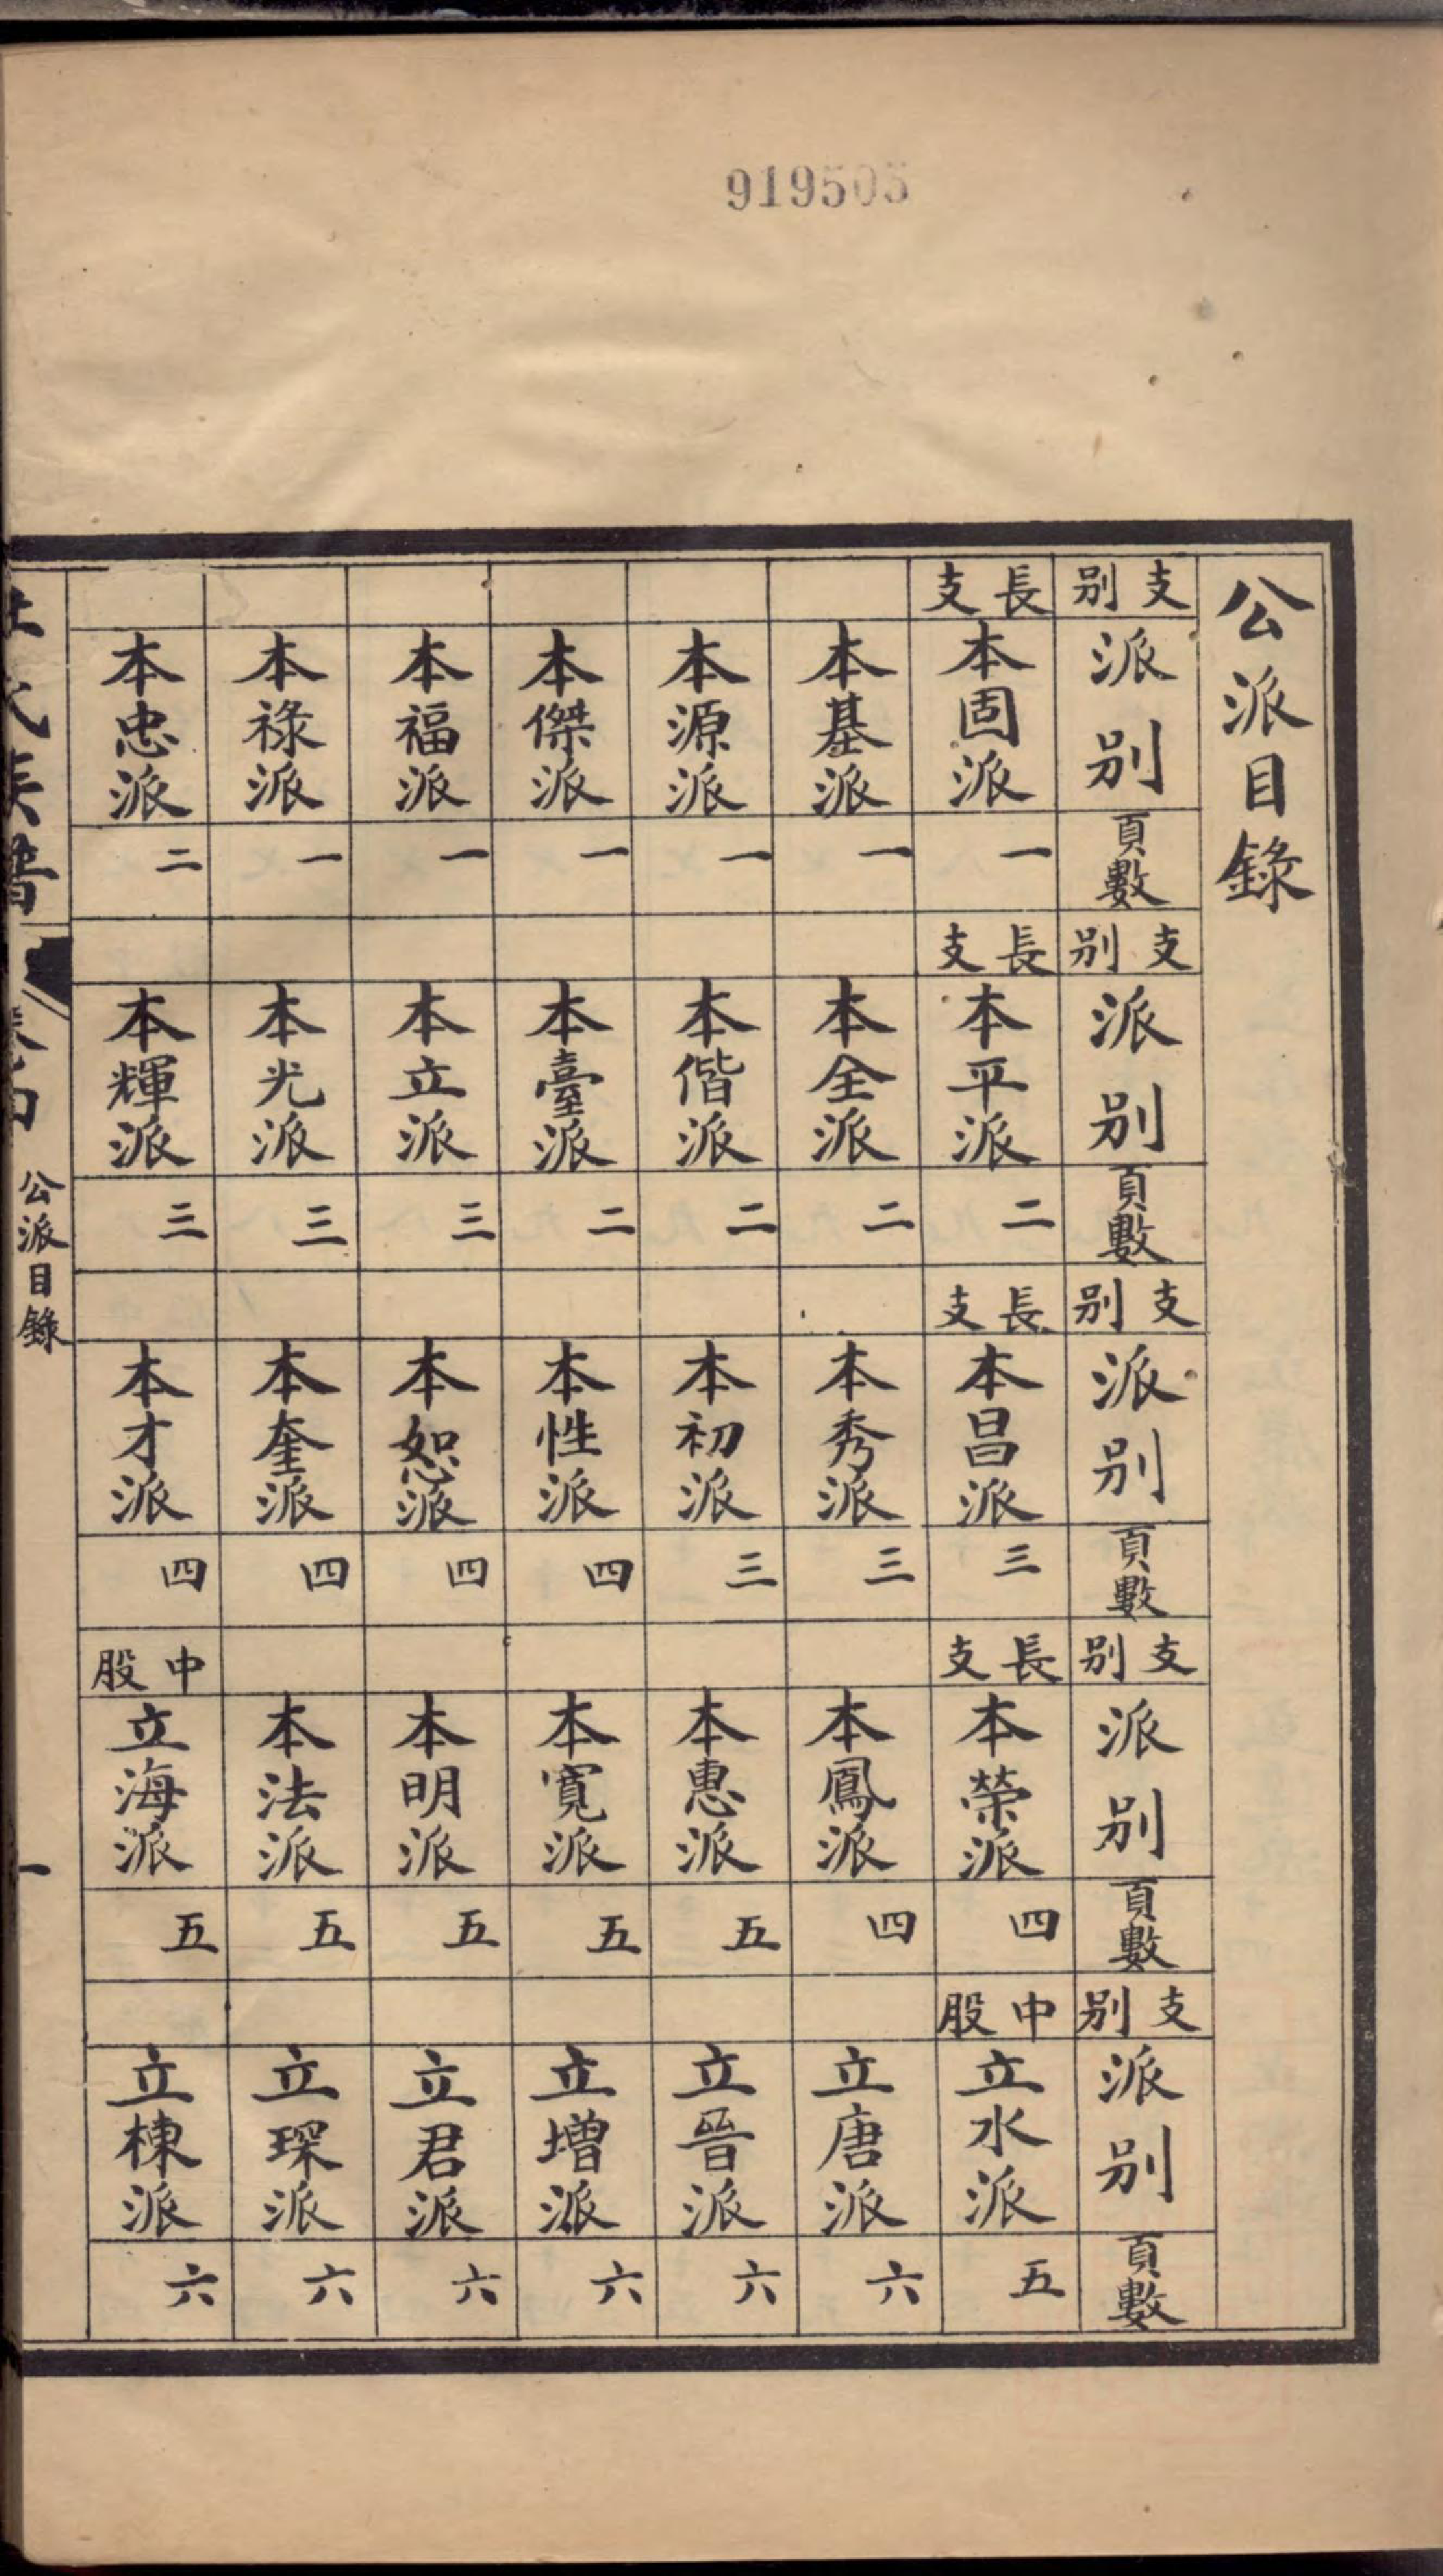 919505
公派目錄
支別 派別 頁數 支別 派別 頁數 支別 派別 頁數 支別 派別 頁數 支別 派別 頁數
長支 本固派 一 長支 本平派 二 長支 本昌派 三 長支 本榮派 四 中股 立水派 五
本基派 一 本全派 二 本秀派 三 本鳳派 四 立唐派 六
本源派 一 本偕派 二 本初派 三 本惠派 五 立晉派 六
本傑派 一 本臺派 二 本性派 四 本寬派 五 立增派 六
本福派 一 本立派 三 本恕派 四 本明派 五 立君派 六
本祿派 一 本光派 三 本奎派 四 本法派 五 立琛派 六
本忠派 二 本輝派 三 本才派 四 中股 立海派 五 立棟派 六
氏族譜 公派目錄 一